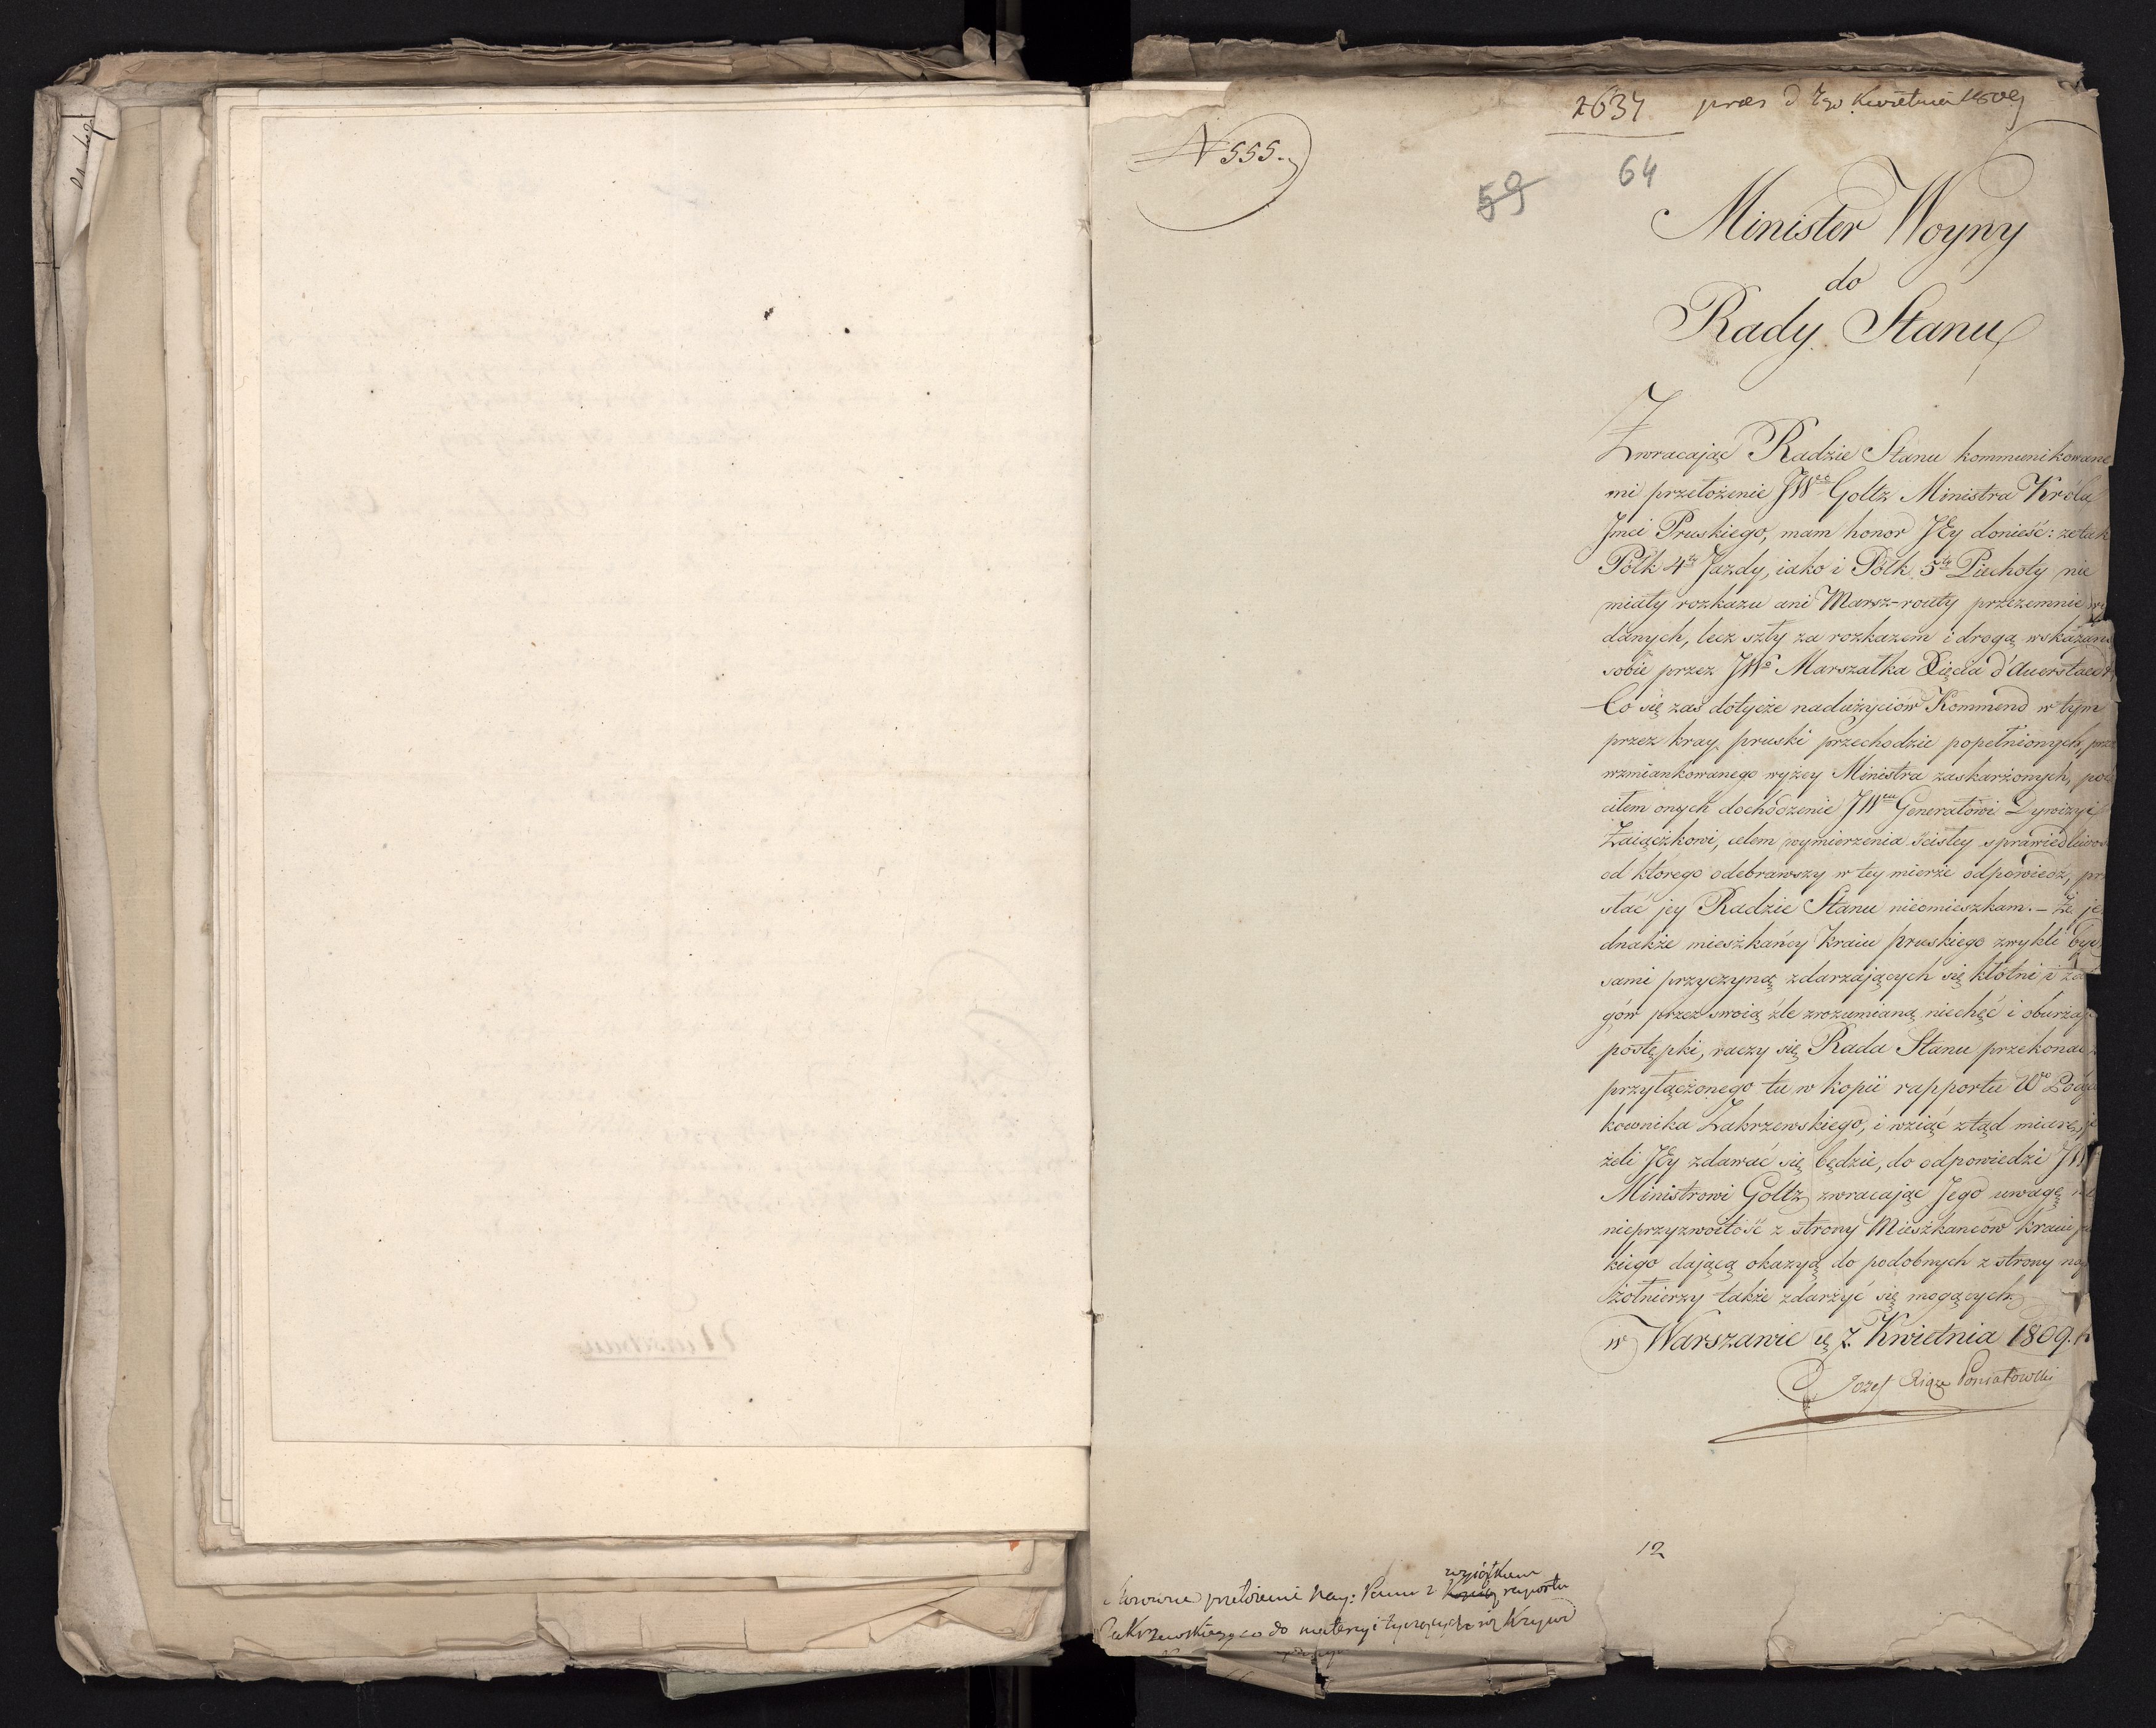 2634 præs d 7go Kwietnia 1809
N 555.
59 64
Minister Woyny
do
Rady Stanu
Zwracaiąc Radzie Stanu kommunikowane
mi przełożenie JWgo Goltz Ministra Króla
Jmci Pruskiego, mam honor JEy donieść: że tak
Półk 4ty Jazdy, iako i Półk 5ty Piechoty nie
miały rozkazu ani Marsz-routy przezemnie wy
danych, lecz szły za rozkazem i drogą wskazaną
sobie przez JWo Marszałka Xięcia d'Auerstaedt
Co się zaś dotycze nadużyciów Kommend w tym
przez kray pruski przechodzie popełnionych, prze
wzmiankowanego wyżey Ministra zaskarżonych, pole
ciłem onych dochodzenie JWmu Generałowi Dywizyi
Zaiączkowi, celem wymierzenia ścisłey sprawiedliwoś
od którego odebrawszy w tey mierze odpowiedź, prze
słać jey Radzie Stanu nieomieszkam. – Że je
dnakże mieszkańcy Kraiu pruskiego zwykli być
sami przyczyną zdarzających się kłótni i za
gów przez swoią źle zrozumianą niechęć i oburzaj
postępki, raczy się Rada Stanu przekonać z
przyłączonego tu w kopii rapportu Wo Podpuł
kownika Zakrzewskiego, i wziąć ztąd miarę, je
żeli JEy zdawać się będzie, do odpowiedzi JW
Ministrowi Goltz zwracając Jego uwagę na
nieprzyzwoitość z strony Mieszkańców kraiu pr
kiego dającą okazyą do podobnych z strony nasz
żołnierzy także zdarzyć się mogących.
w Warszawie d. 7. Kwietnia 1809. r
Jozef Xiąże Poniatowski
12
wyiątkiem
przełożenie z raportu
Zakrzewskiego co do materyi tyczących się Krzywd